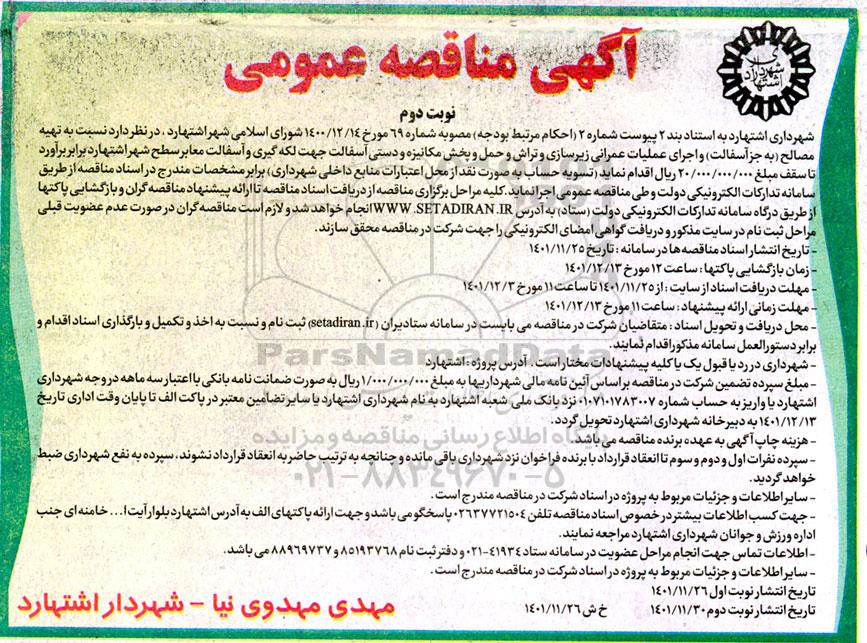 شهرداری
اشتهارد
آگهی مناقصه عمومی
نوبت دوم
شهرداری اشتهارد به استناد بند ۲ پیوست شماره ۲ (احکام مرتبط بودجه) مصوبه شماره ۶۹ مورخ ۱۴۰۰/۱۲/۱۴ شورای اسلامی شهر اشتهارد ، در نظر دارد نسبت به تهیه
مصالح (به جز آسفالت) و اجرای عملیات عمرانی زیرسازی و تراش و حمل و پخش مکانیزه و دستی آسفالت جهت لکه گیری و آسفالت معابر سطح شهر اشتهارد برابر برآورد
تا سقف مبلغ ۲۰/۰۰۰/۰۰۰/۰۰۰ ریال اقدام نماید (تسویه حساب به صورت نقد از محل اعتبارات منابع داخلی شهرداری) برابر مشخصات مندرج در اسناد مناقصه از طریق
سامانه تدارکات الکترونیکی دولت و طی مناقصه عمومی اجرا نماید. کلیه مراحل برگزاری مناقصه از دریافت اسناد مناقصه تا ارائه پیشنهاد مناقصه گران و بازگشایی پاکتها
از طریق درگاه سامانه تدارکات الکترونیکی دولت (ستاد) به آدرس WWW.SETADIRAN.IR انجام خواهد شد و لازم است مناقصه گران در صورت عدم عضویت قبلی
مراحل ثبت نام در سایت مذکور و دریافت گواهی امضای الکترونیکی را جهت شرکت در مناقصه محقق سازند.
- تاریخ انتشار اسناد مناقصه ها در سامانه : تاریخ ۱۴۰۱/۱۱/۲۵
- زمان بازگشایی پاکتها : ساعت ۱۲ مورخ ۱۴۰۱/۱۲/۱۳
- مهلت دریافت اسناد از سایت : از ۱۴۰۱/۱۱/۲۵ تا ساعت ۱۱ مورخ ۱۴۰۱/۱۲/۳
- مهلت زمانی ارائه پیشنهاد : ساعت ۱۱ مورخ ۱۴۰۱/۱۲/۱۳
- محل دریافت و تحویل اسناد : متقاضیان شرکت در مناقصه می بایست در سامانه ستادیران (setadiran.ir) ثبت نام و نسبت به اخذ و تکمیل و بارگذاری اسناد اقدام و
برابر دستورالعمل سامانه مذکور اقدام نمایند.
- شهرداری در رد یا قبول یک یا کلیه پیشنهادات مختار است . آدرس پروژه : اشتهارد
- مبلغ سپرده تضمین شرکت در مناقصه بر اساس آئین نامه مالی شهرداریها به مبلغ ۱/۰۰۰/۰۰۰/۰۰۰ ریال به صورت ضمانت نامه بانکی با اعتبار سه ماهه در وجه شهرداری
اشتهارد یا واریز به حساب شماره ۰۱۰۷۱۰۱۷۸۳۰۰۷ نزد بانک ملی شعبه اشتهارد به نام شهرداری اشتهارد یا سایر تضامین معتبر در پاکت الف تا پایان وقت اداری تاریخ
۱۴۰۱/۱۲/۱۳ به دبیرخانه شهرداری اشتهارد تحویل گردد.
- هزینه چاپ آگهی به عهده برنده مناقصه می باشد.
- سپرده نفرات اول و دوم و سوم تا انعقاد قرارداد با برنده فراخوان نزد شهرداری باقی مانده و چنانچه به ترتیب حاضر به انعقاد قرارداد نشوند، سپرده به نفع شهرداری ضبط
خواهد گردید.
- سایر اطلاعات و جزئیات مربوط به پروژه در اسناد شرکت در مناقصه مندرج است .
- جهت کسب اطلاعات بیشتر در خصوص اسناد مناقصه تلفن ۰۲۶۳۷۷۲۱۵۰۴ پاسخگو می باشد و جهت ارائه پاکتهای الف به آدرس اشتهارد بلوار آیت ا... خامنه ای جنب
اداره ورزش و جوانان شهرداری اشتهارد مراجعه نمایند.
- اطلاعات تماس جهت انجام مراحل عضویت در سامانه ستاد ۴۱۹۳۴-۰۲۱ و دفتر ثبت نام ۸۵۱۹۳۷۶۸ و ۸۸۹۶۹۷۳۷ می باشد.
- سایر اطلاعات و جزئیات مربوط به پروژه در اسناد شرکت در مناقصه مندرج است .
تاریخ انتشار نوبت اول ۱۴۰۱/۱۱/۲۶
تاریخ انتشار نوبت دوم ۱۴۰۱/۱۱/۳۰ خ ش ۱۴۰۱/۱۱/۲۶
مهدی مهدوی نیا - شهردار اشتهارد
ParsNamadData
پایگاه اطلاع رسانی مناقصه و مزایده
۰۲۱-۸۸۳۴۹۶۷۰-۵